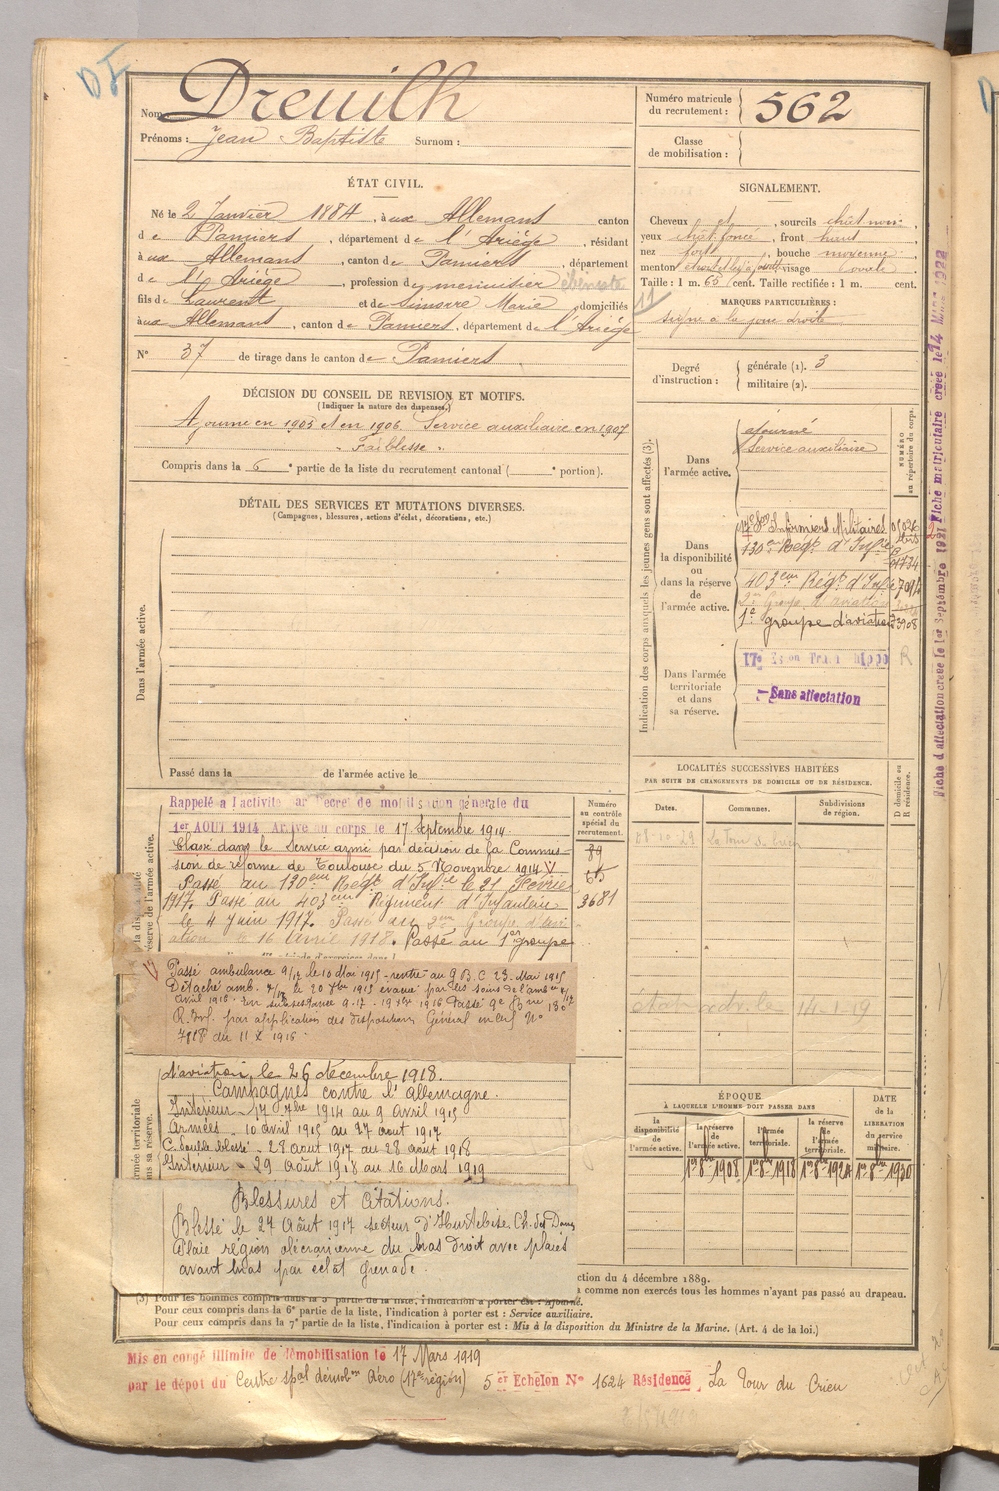 Nom : Dreuilh
Prénoms : Jean Baptiste Surnom :
Numéro matricule du recrutement : 562
Classe de mobilisation :
ÉTAT CIVIL.
Né le 2 Janvier 1884, à aux Allemans canton
de Pamiers, département de l'Ariège, résidant
à aux Allemans, canton de Pamiers, département
de l'Ariège, profession de menuisier ébéniste
fils de Laurent et de Simorre Marie, domiciliés
à aux Allemans, canton de Pamiers, département de l'Ariège
N° 37 de tirage dans le canton de Pamiers
SIGNALEMENT.
Cheveux et, sourcils chât noir
yeux chât foncé, front haut
nez fort, bouche moyenne
menton visage ovale
Taille : 1 m. 65 cent. Taille rectifiée : 1 m. cent.
MARQUES PARTICULIÈRES :
signe à la joue droite
11
Degré d'instruction : générale (1). 3
militaire (2).
DÉCISION DU CONSEIL DE REVISION ET MOTIFS.
(Indiquer la nature des dispenses.)
Ajourné en 1905 et en 1906. Service auxiliaire en 1907
"Faiblesse".
Compris dans la 6e partie de la liste du recrutement cantonal ( e portion).
DÉTAIL DES SERVICES ET MUTATIONS DIVERSES.
(Campagnes, blessures, actions d'éclat, décorations, etc.)
Dans l'armée active.
Passé dans la de l'armée active le
Indication des corps auxquels les jeunes gens sont affectés (3).
NUMÉRO au répertoire du corps.
Dans l'armée active.
ajourné
Service auxiliaire
Dans la disponibilité ou dans la réserve de l'armée active.
17e Son Infirmiers Militaires
130eme Régt d'Infie
403eme Régt d'Infie 7094
2e Groupe d'aviation
1e groupe d'aviation
Dans l'armée territoriale et dans sa réserve.
17e Esc on Train hippo R
Sans affectation
Fiche d'affectation créée le 1er Septembre 1921 Fiche matriculaire créée le 14 MARS 1922
Rappelé à l'activité par Décret de mobilisation générale du
1er AOUT 1914 Arrivé au corps le 17 Septembre 1914.
Classé dans le Service armé par décision de la Commis-
sion de réforme de Toulouse du 5 Novembre 1914
Passé au 130eme Régt d'Infie le 21 Février
1917. Passé au 403eme Régiment d'Infanterie
le 4 Juin 1917. Passé au 2eme Groupe d'avi-
ation le 16 Avril 1918. Passé au 1er groupe
Numéro au contrôle spécial du recrutement.
89
65
3681
Passé ambulance 9/17 le 10 Mai 1915 - rentré au G.B.C 23 Mai 1915
Détaché amb. le 20 évacué par les soins de l'amb
avril 1916 - en subsistance 9-17 - 1916 Passé 130e
R. Inf. par application des dispositions Général en chef N°
7818 du 11 X 1916
d'aviation le 26 décembre 1918.
Campagnes contre l'Allemagne.
Intérieur - 17 7bre 1914 au 9 avril 1915
Armées - 10 avril 1915 au 27 août 1917
C. double blessé - 28 août 1917 au 28 août 1918
Intérieur - 29 août 1918 au 16 Mars 1919
Blessures et Citations.
Blessé le 27 Août 1917 secteur d'Hurtebise. Ch. des Dames
Plaie région olécranienne du bras droit avec plaies
avant bras par éclat grenade.
LOCALITÉS SUCCESSIVES HABITÉES
PAR SUITE DE CHANGEMENTS DE DOMICILE OU DE RÉSIDENCE.
Dates. Communes. Subdivisions de région. D domicile ou R résidence.
ÉPOQUE
À LAQUELLE L'HOMME DOIT PASSER DANS
la disponibilité de l'armée active. la réserve de l'armée active. l'armée territoriale. la réserve de l'armée territoriale. DATE de la LIBÉRATION du service militaire.
1er 8bre 1908 1er 8bre 1918 1er 8bre 1924 1er 8bre 1930
ction du 4 décembre 1889.
à comme non exercés tous les hommes n'ayant pas passé au drapeau.
(3) Pour les hommes compris dans la 5e partie de la liste, l'indication à porter est : Ajourné.
Pour ceux compris dans la 6e partie de la liste, l'indication à porter est : Service auxiliaire.
Pour ceux compris dans la 7e partie de la liste, l'indication à porter est : Mis à la disposition du Ministre de la Marine. (Art. 4 de la loi.)
Mis en congé illimité de démobilisation le 17 Mars 1919
par le dépôt du Centre spal démobon Aéro (17e région) 5er Echelon N° 1624 Résidence La Tour du Crieu